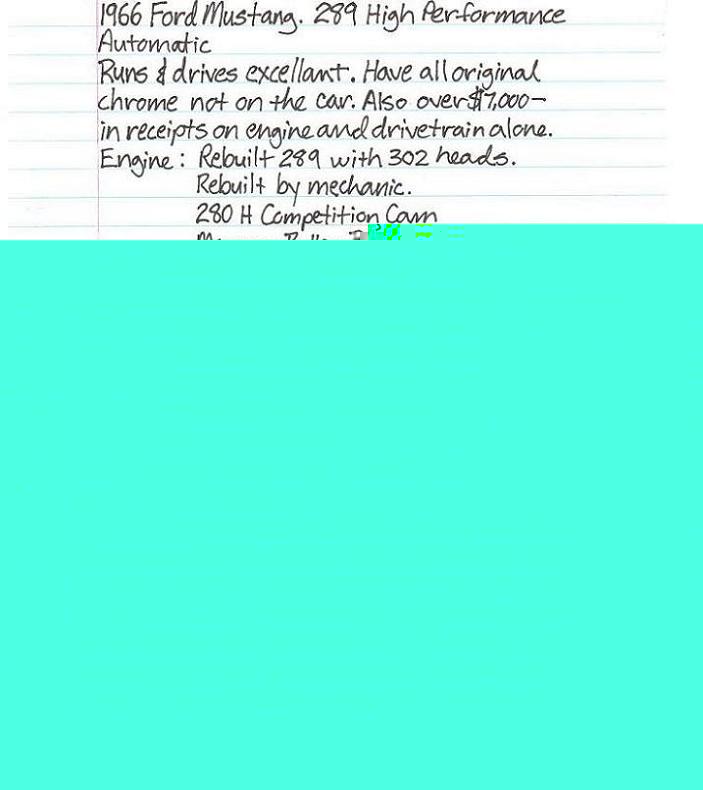 1966 Ford Mustang. 289 High Performance
Automatic
Runs & drives excellant. Have all original
chrome not on the car. Also over $7,000-
in receipts on engine and drivetrain alone.
Engine: Rebuilt 289 with 302 heads.
Rebuilt by mechanic.
280 H Competition Cam